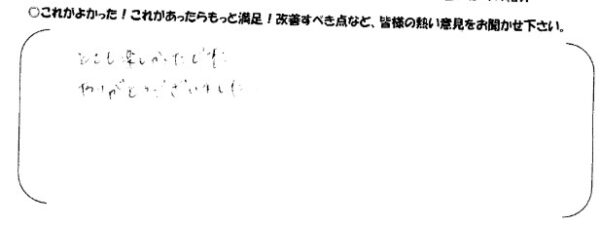 ○これがよかった！これがあったらもっと満足！改善すべき点など、皆様の熱い意見をお聞かせ下さい。
とても楽しかったです
ありがとうございました